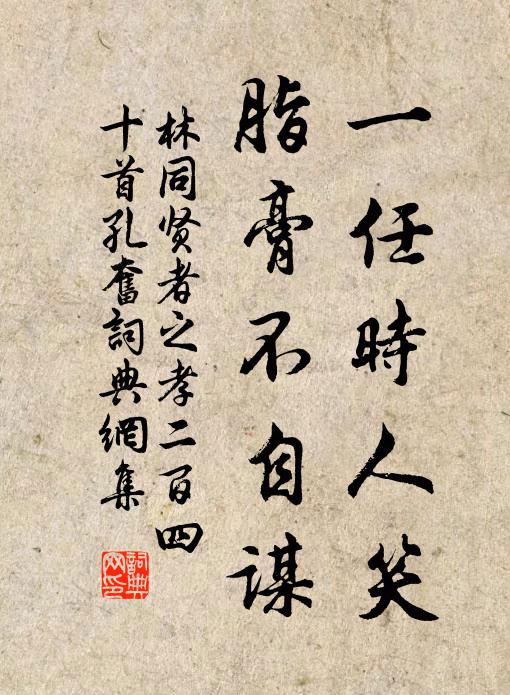 一任時人笑
脂膏不自謀
林同贤者之孝二百四
十首孔奮詞典網集
詞典
网印